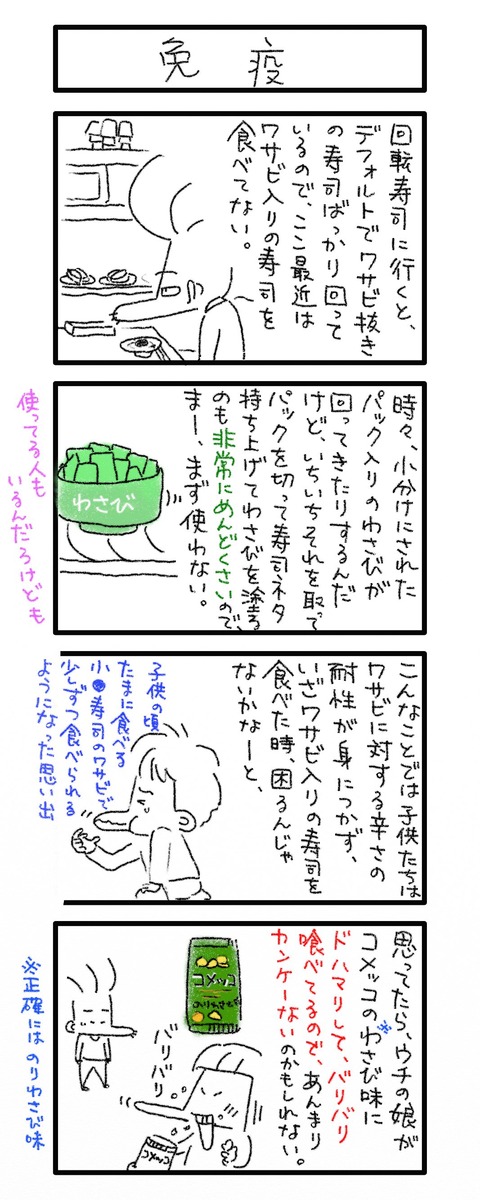 免疫
回転寿司に行くと、
デフォルトでワサビ抜き
の寿司ばっかり回って
いるので、ここ最近は
ワサビ入りの寿司を
食べてない。
時々、小分けにされた
パック入りのわさびが
回ってきたりするんだ
けど、いちいちそれを取って
パックを切って寿司ネタ
持ち上げてわさびを塗る
のも非常にめんどくさいので、
まー、まず使わない。
わさび
使ってる人も
いるんだろけども
こんなことでは子供たちは
ワサビに対する辛さの
耐性が身につかず、
いざワサビ入りの寿司を
食べた時、困るんじゃ
ないかなーと、
子供の頃
たまに食べる
小●寿司のワサビで
少しずつ食べられる
ようになった思い出
思ってたら、ウチの娘が
コメッコのわさび味に
※
ドハマリして、バリバリ
喰べてるので、あんまり
カンケーないのかもしれない。
コメッコ
のりわさび味
バリバリ
コメッコ
※正確には のりわさび味